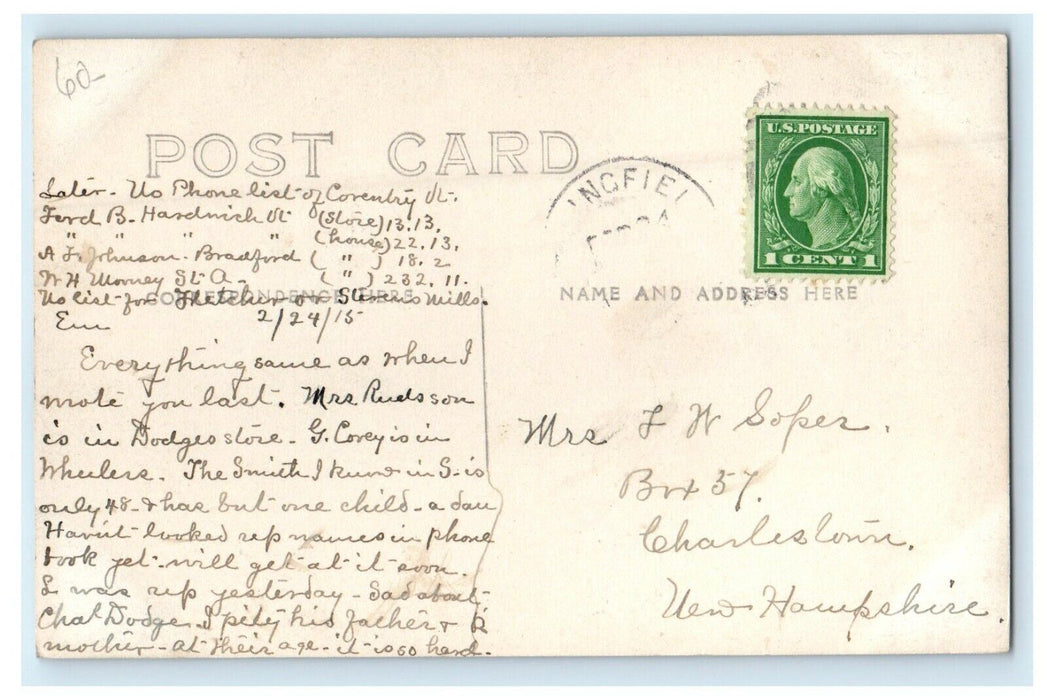 60-
POST CARD
U.S. POSTAGE
1 CENT 1
INGFIEL
Later - No Phone list of Coventry Vt.
Ferd B. Hardwick Vt (Store) 13.13.
" " " " (house) 22.13.
A F. Johnson - Bradford ( " ) 18.2
W H Morney St. A - ( " ) 232.11.
No list for Fletcher or Stevens Mills.
CORRESPONDENCE HERE
NAME AND ADDRESS HERE
Em 2/24/15
Everything same as when I
wrote you last. Mrs
is in Dodges store - G. Corey is in
Wheelers. The Smith I know in S- is
only 48 - & has but one child - a dau
Havn't looked up names in phone
book yet - will get at it soon.
L was up yesterday - Sad about
Chas Dodge. I pity his father &
mother - at their age - it is so hard.
Mrs F W Soper.
Box 57.
Charlestown.
New Hampshire.